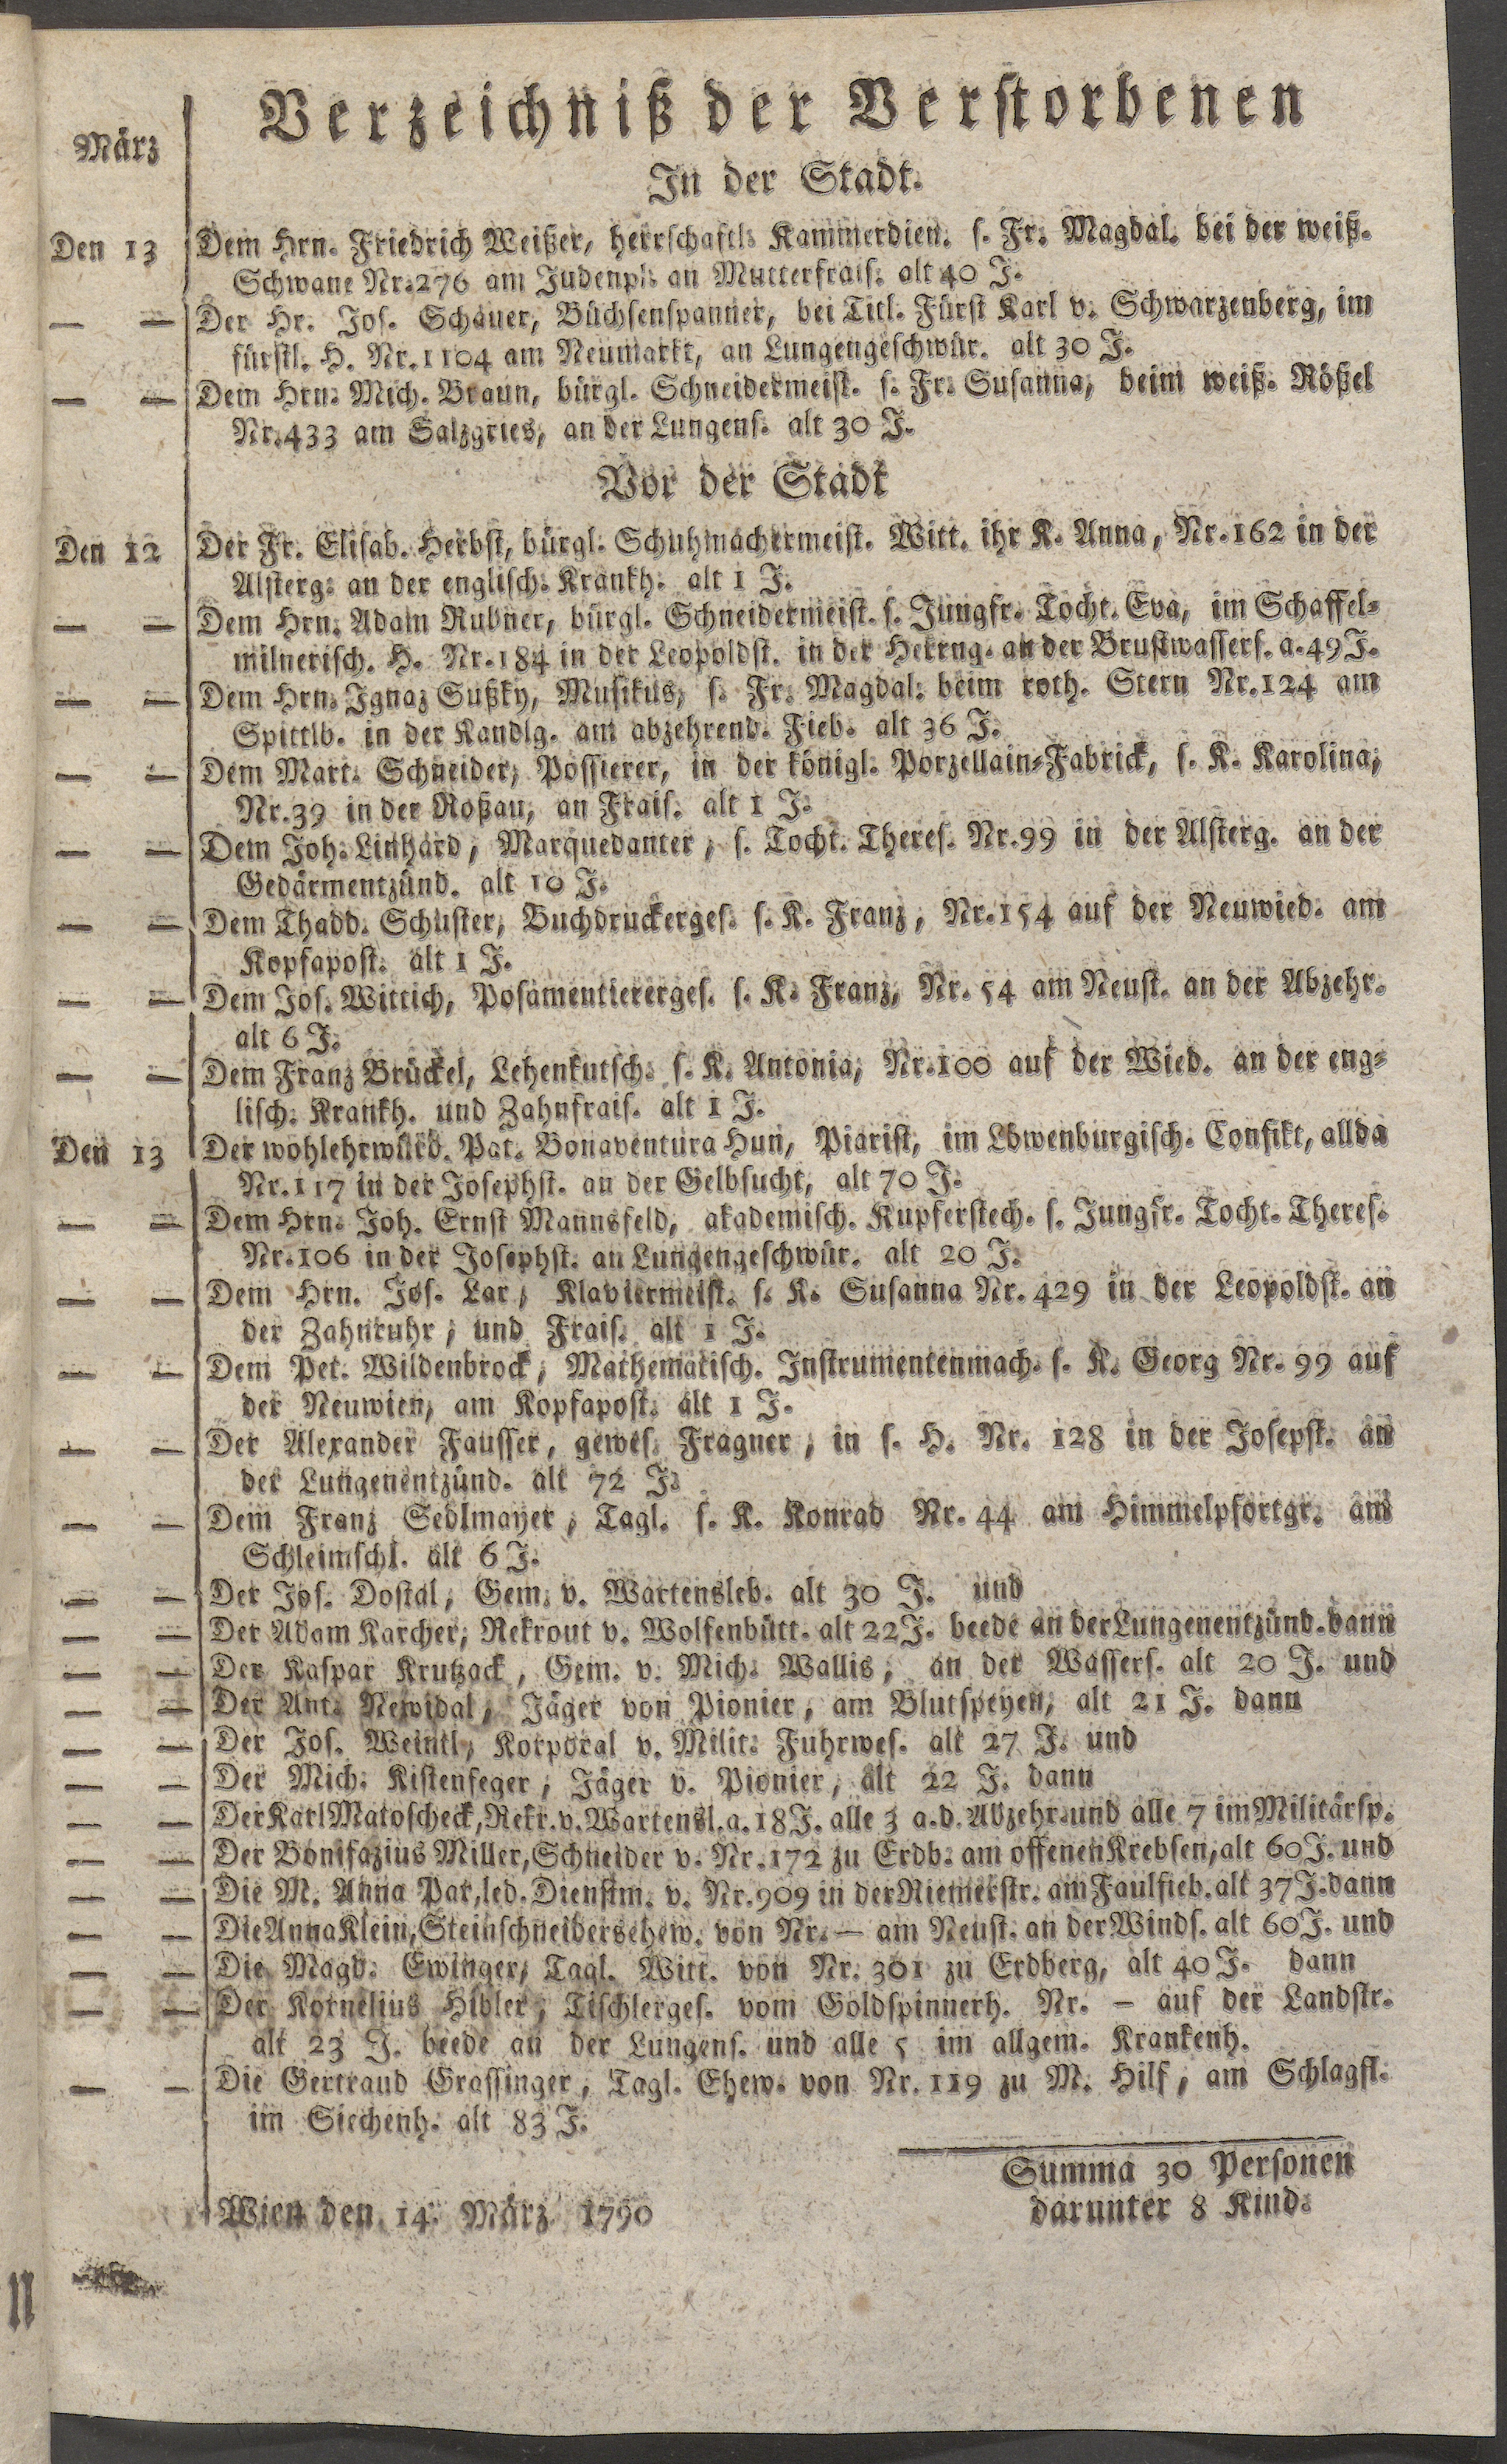 Verzeichniß der Verstorbenen
März
In der Stadt.
Den 13 Dem Hrn. Friedrich Weißer, herrschaftl. Kammerdien. s. Fr. Magdal. bei der weiß.
Schwane Nr. 276 am Judenpl. an Mutterfrais. alt 40 J.
— — Der Hr. Jos. Schauer, Büchsenspanner, bei Titl. Fürst Karl v. Schwarzenberg, im
fürstl. H. Nr. 1104 am Neumarkt, an Lungengeschwür. alt 30 J.
— — Dem Hrn. Mich. Braun, bürgl. Schneidermeist. s. Fr. Susanna, beim weiß. Rößel
Nr. 433 am Salzgries, an der Lungens. alt 30 J.
Vor der Stadt
Den 12 Der Fr. Elisab. Herbst, bürgl. Schuhmachermeist. Witt. ihr K. Anna, Nr. 162 in der
Alsterg. an der englisch. Krankh. alt 1 J.
— — Dem Hrn. Adam Rubner, bürgl. Schneidermeist. s. Jungfr. Tocht. Eva, im Schaffel-
milnerisch. H. Nr. 184 in der Leopoldst. in der Herrng. an der Brustwassers. a. 49 J.
— — Dem Hrn. Ignaz Sußky, Musikus, s. Fr. Magdal. beim roth. Stern Nr. 124 am
Spittlb. in der Kandlg. am abzehrend. Fieb. alt 36 J.
— — Dem Mart. Schneider, Possierer, in der königl. Porzellain-Fabrick, s. K. Karolina,
Nr. 39 in der Roßau, an Frais. alt 1 J.
— — Dem Joh. Linhard, Marquedanter, s. Tocht. Theres. Nr. 99 in der Alsterg. an der
Gedärmentzünd. alt 10 J.
— — Dem Thadd. Schuster, Buchdruckerges. s. K. Franz, Nr. 154 auf der Neuwied. am
Kopfapost. alt 1 J.
— — Dem Jos. Wittich, Posamentiererges. s. K. Franz, Nr. 54 am Neust. an der Abzehr.
alt 6 J.
— — Dem Franz Brückel, Lehenkutsch. s. K. Antonia, Nr. 100 auf der Wied. an der eng-
lisch. Krankh. und Zahnfrais. alt 1 J.
Den 13 Der wohlehrwürd. Pat. Bonaventura Hun, Piarist, im Löwenburgisch. Confikt, allda
Nr. 117 in der Josephst. an der Gelbsucht, alt 70 J.
— — Dem Hrn. Joh. Ernst Mannsfeld, akademisch. Kupferstech. s. Jungfr. Tocht. Theres.
Nr. 106 in der Josephst. an Lungengeschwür. alt 20 J.
— — Dem Hrn. Jos. Lar, Klaviermeist. s. K. Susanna Nr. 429 in der Leopoldst. an
der Zahnruhr, und Frais. alt 1 J.
— — Dem Pet. Wildenbrock, Mathematisch. Instrumentenmach. s. K. Georg Nr. 99 auf
der Neuwien, am Kopfapost. alt 1 J.
— — Der Alexander Fausser, gewes. Fragner, in s. H. Nr. 128 in der Josepst. an
der Lungenentzünd. alt 72 J.
— — Dem Franz Sedlmayer, Tagl. s. K. Konrad Nr. 44 am Himmelpfortgr. am
Schleimschl. alt 6 J.
— — Der Jos. Dostal, Gem. v. Wartensleb. alt 30 J. und
— — Der Adam Karcher, Rekrout v. Wolfenbütt. alt 22 J. beede an der Lungenentzünd. dann
— — Der Kaspar Krutzack, Gem. v. Mich. Wallis, an der Wassers. alt 20 J. und
— — Der Ant. Newidal, Jäger von Pionier, am Blutspeyen, alt 21 J. dann
— — Der Jos. Weintl, Korporal v. Milit. Fuhrwes. alt 27 J. und
— — Der Mich. Kistenfeger, Jäger v. Pionier, alt 22 J. dann
— — Der Karl Matoscheck, Rekr. v. Wartensl. a. 18 J. alle 3 a. d. Abzehr. und alle 7 im Militärsp.
— — Der Bonifazius Miller, Schneider v. Nr. 172 zu Erdb. am offenen Krebsen, alt 60 J. und
— — Die M. Anna Pat, led. Dienstm. v. Nr. 909 in der Riemerstr. am Faulfieb. alt 37 J. dann
— — Die Anna Klein, Steinschneidersehew. von Nr. — am Neust. an der Winds. alt 60 J. und
— — Die Magd. Ewinger, Tagl. Witt. von Nr. 301 zu Erdberg, alt 40 J. dann
— — Der Kornelius Hibler, Tischlerges. vom Goldspinnerh. Nr. — auf der Landstr.
alt 23 J. beede an der Lungens. und alle 5 im allgem. Krankenh.
— — Die Gertraud Grassinger, Tagl. Ehew. von Nr. 119 zu M. Hilf, am Schlagfl.
im Siechenh. alt 83 J.
Summa 30 Personen
darunter 8 Kind.
Wien den 14. März 1790